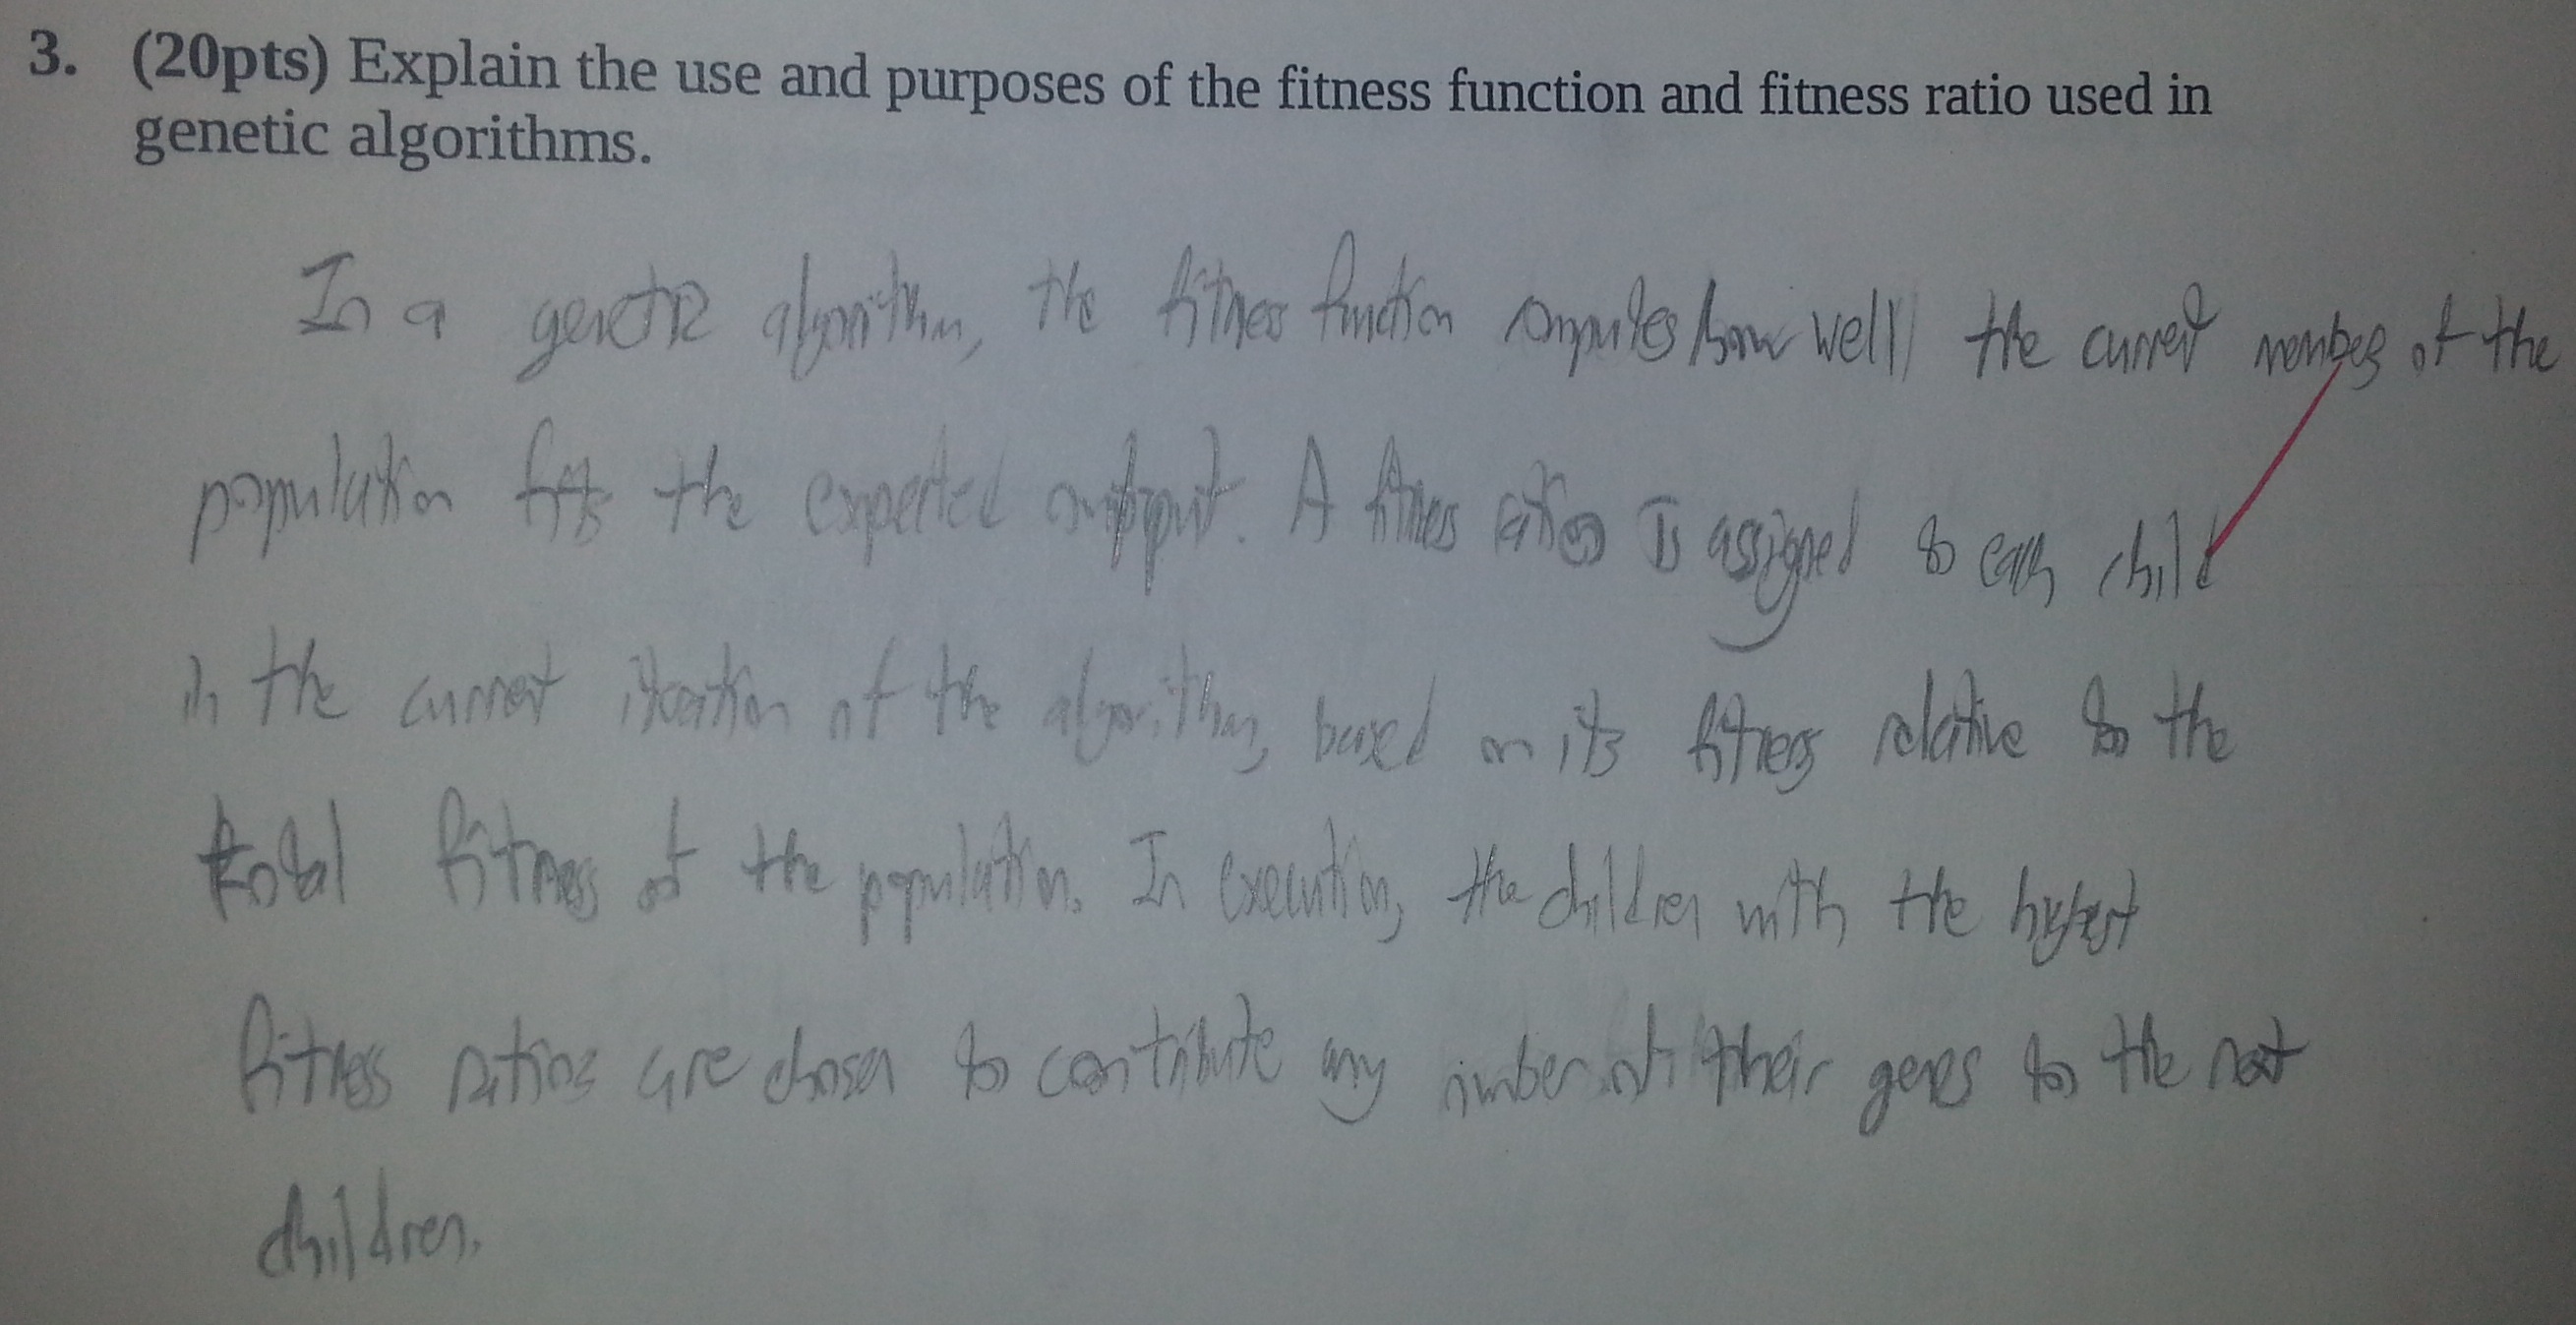 3. (20pts) Explain the use and purposes of the fitness function and fitness ratio used in
genetic algorithms.
In a genetic algorithm, the fitness function computes how well the current member of the
population fits the expected output. A fitness ratio is assigned to each child
in the current iteration of the algorithm, based on its fitness relative to the
total fitness of the population. In execution, the children with the highest
fitness ratios are chosen to contribute any number of their genes to the next
children.